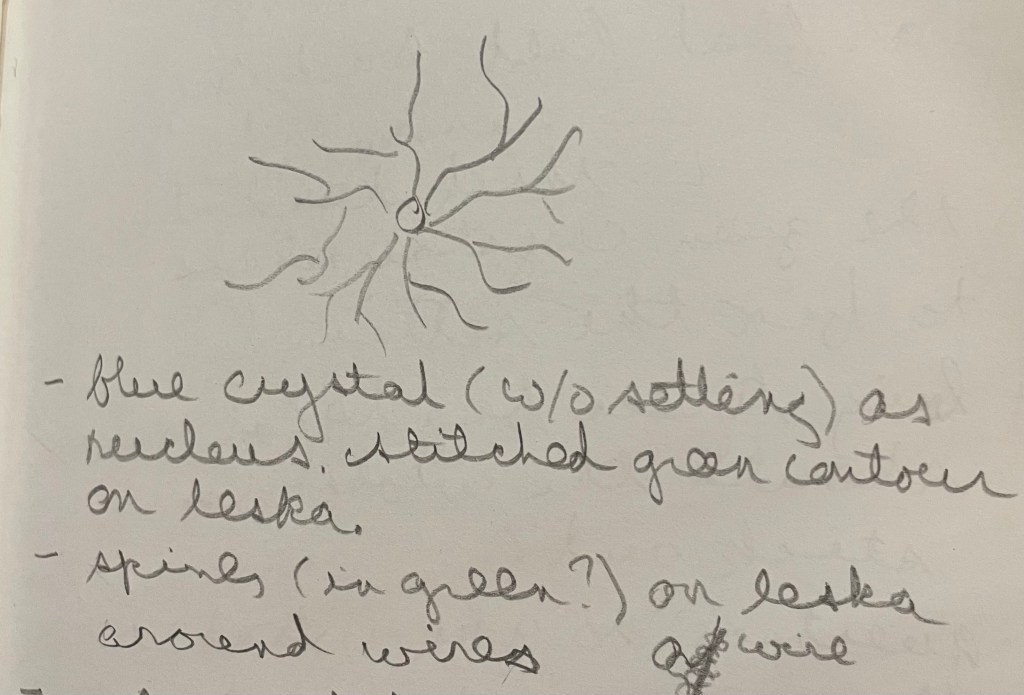 - blue crystal (w/o setting) as
nucleus. stitched green contour
on leska.
- spines (in green?) on leska
around wires
wire